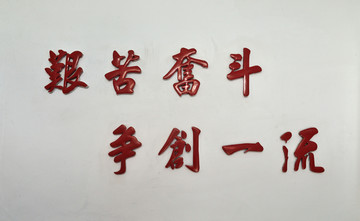 艱苦奮斗
爭創一流